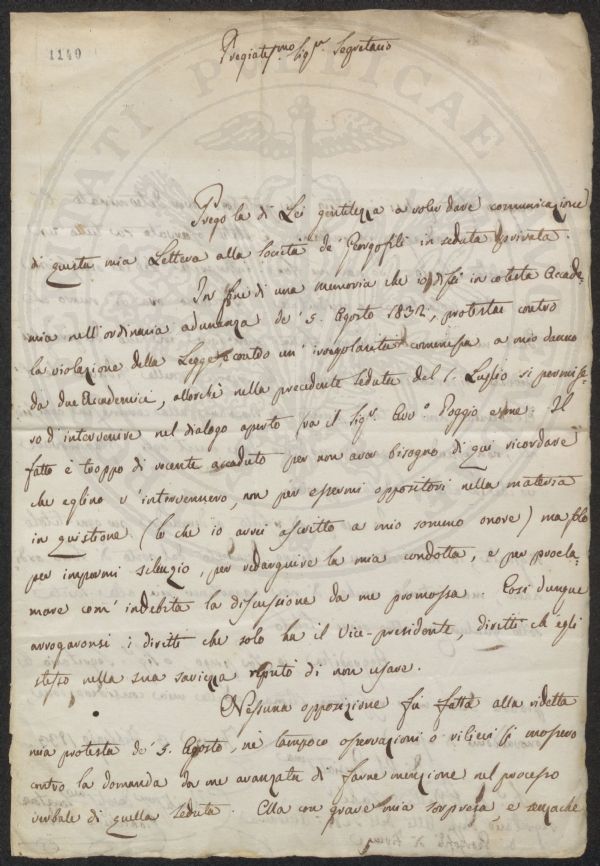 1140
Pregiatis.mo Sig.r Segretario
Prego la di Lei gentilezza a voler dare comunicazione
di questa mia Lettera alla Società de' Georgofili in seduta privata.
In fine di una memoria che io dissi in cotesta Accade-
mia nell'ordinaria adunanza de' 5. Agosto 1832, protestai contro
la violazione della Legge contro un' irregolarità commessa a mio danno
da due Accademici, allorchè nella precedente seduta del 1. Luglio si permise-
ro d'intervenire nel dialogo aperto fra il Sig.r Avv.o Poggi e me. Il
fatto è troppo di recente accaduto per non aver bisogno di qui ricordare
che eglino v'intervennero, non per essermi oppositori nella materia
in quistione (lo che io avrei ascritto a mio sommo onore) ma solo
per impormi silenzio, per redarguire la mia condotta, e per procla-
mare com' indebita la discussione da me promossa. Così dunque
arrogaronsi i diritti che solo ha il Vice-presidente, diritti ch'egli
stesso nella sua saviezza reputò di non usare.
Nessuna opposizione fù fatta alla ridetta
mia protesta de' 5. Agosto, nè tampoco osservazioni o rilievi si mossero
contro la domanda da me avanzata di farne menzione nel processo
verbale di quella seduta. Ella con grave mia sorpresa, e senzachè